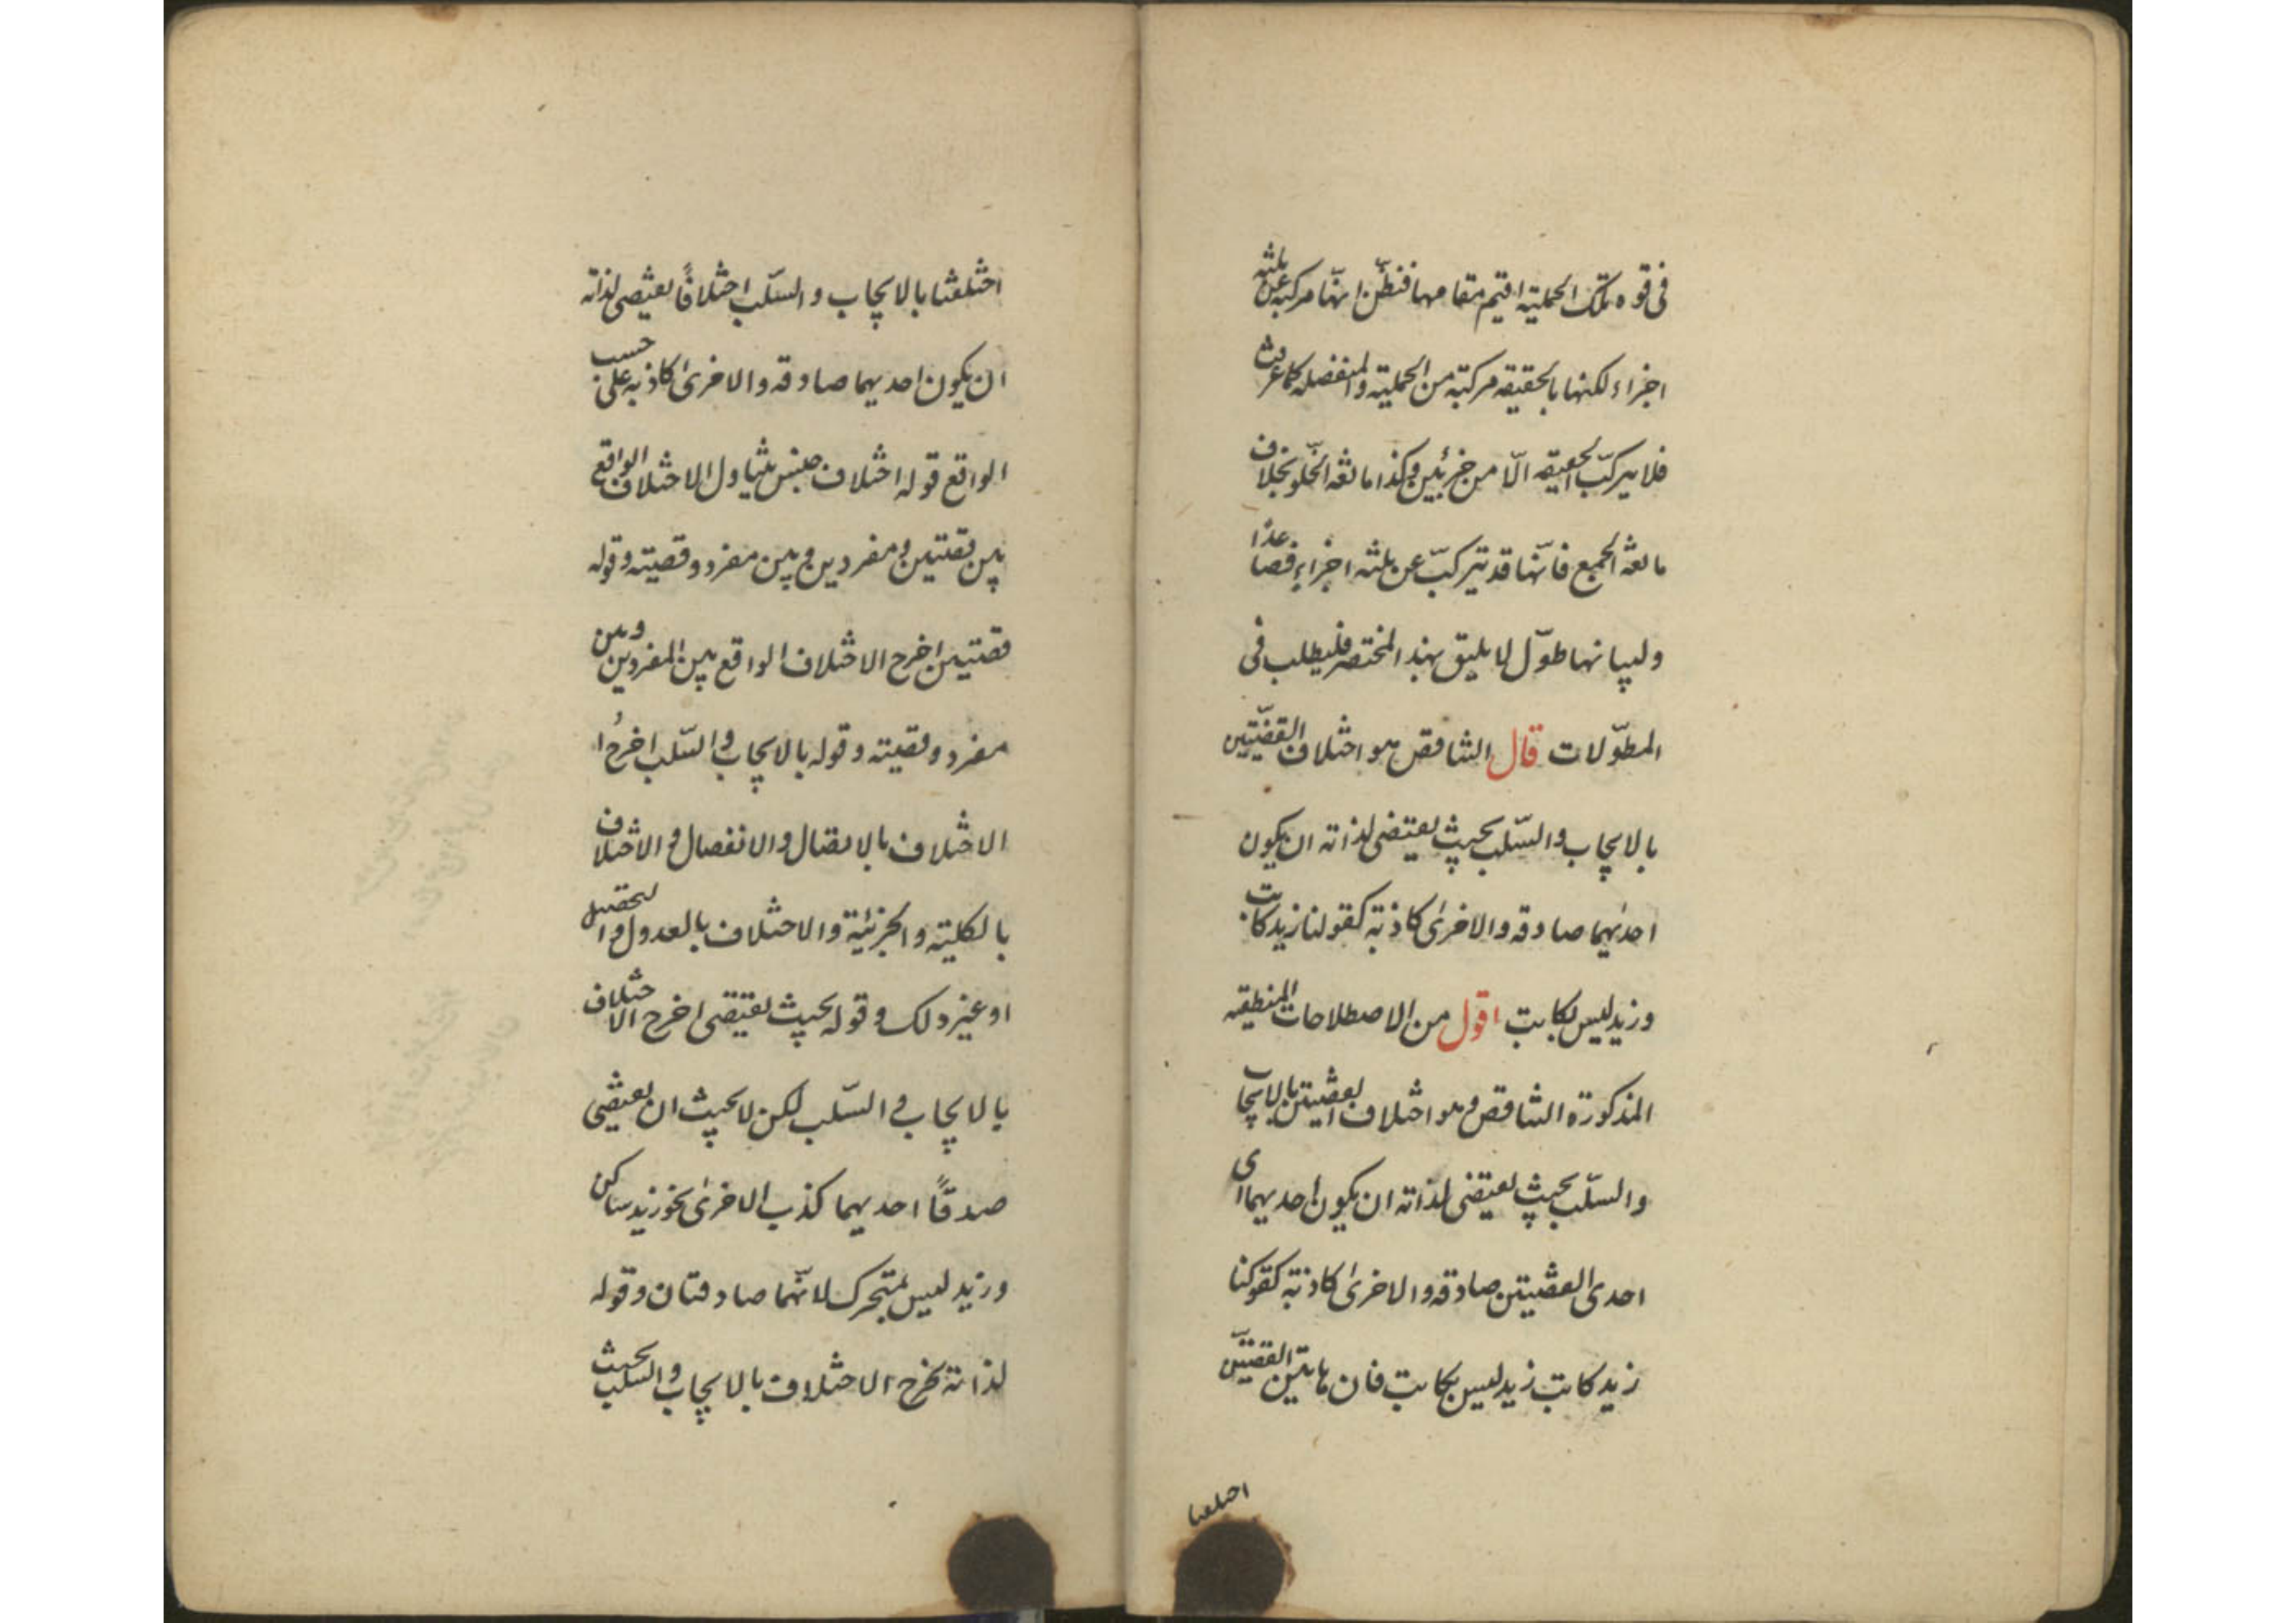 فى قوه تلك الحمليّة اقيم مقامها فتظنّ انّها مركبة عن ثلثه
اجزاء لكنها بالحقيقه مركبّة من الحمليّة والمنفصله كما عرفت
فلا يتركّب الحقيقه الّا من جزئين وكذا مانعه الخلّو بخلاف
مانعة الجمع فانّها قد تتركّب عن ثلثه اجزاء فصاعدًا
ولبيانها طوّل لا يليق بهذا المختصر فليطلب فى
المطوّلات قال التناقص هو اختلاف القضيّتين
بالايجاب والسّلب بحيث يقتضى لذاته ان يكون
احدٰيهما صادقه والاخرىٰ كاذبّة كقولنا زيد كاتب
وزيد ليس بكاتب اقول من الاصطلاحات المنطقيه
المذكورة التناقص وهو اختلاف القضيتين بالايجاب
والسّلب بحيث يقتضى لذاته ان يكون احديهما اى
احدى القضيتين صادقه والاخرىٰ كاذبّة كقولنا
زيد كاتب زيد ليس بكاتب فان هاتين القضيّتين
اختلفتا
اختلفتا بالايجاب والسّلب اختلافًا يقتضى لذاته
ان يكون احديهما صادقه والاخرىٰ كاذبه على حسب
الواقع قوله اختلاف جنس يتناول الاختلاف الواقع
بين قضتين ومفردين وبين مفرد وقضيته وقوله
قضتين اخرج الاختلاف الواقع بين المفردين وبين
مفرد وقضيته وقوله بالايجاب والسّلب اخرج ا
الاختلاف بالاتصال والانفصال والاختلاف
بالكليته والجزئيّة والاختلاف بالعدول والتحصيل
او غير ذلك وقوله بحيث يقتضى اخرج الاختلاف
بالايجاب والسّلب لكن لا بحيث ان يقتضى
صدقًا احديهما كذب الاخرىٰ نحو زيد ساكن
وزيد ليس بمتحرك لانّهما صادقتان وقوله
لذاته يخرج الاختلاف بالايجاب والسلب بحيث